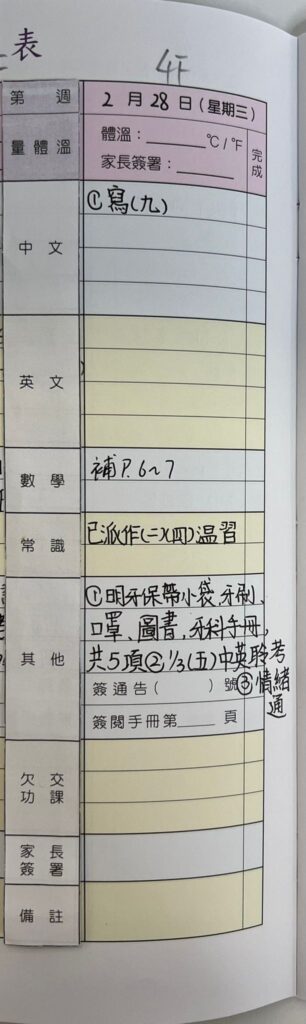 表
4F
第 週 2 月 28 日 (星期三)
量體溫 體溫：______℃/℉ 完成
家長簽署：______
中文 ①寫(九)
英文
數學 補P.6~7
常識 已派作(二)(四)溫習
其他 ①明牙保帶小袋、牙刷、
口罩、圖書、牙科手冊，
共5項②1/3(五)中英聆考
③情緒通
簽通告( )號
簽閱手冊第____頁
欠交功課
家長簽署
備註